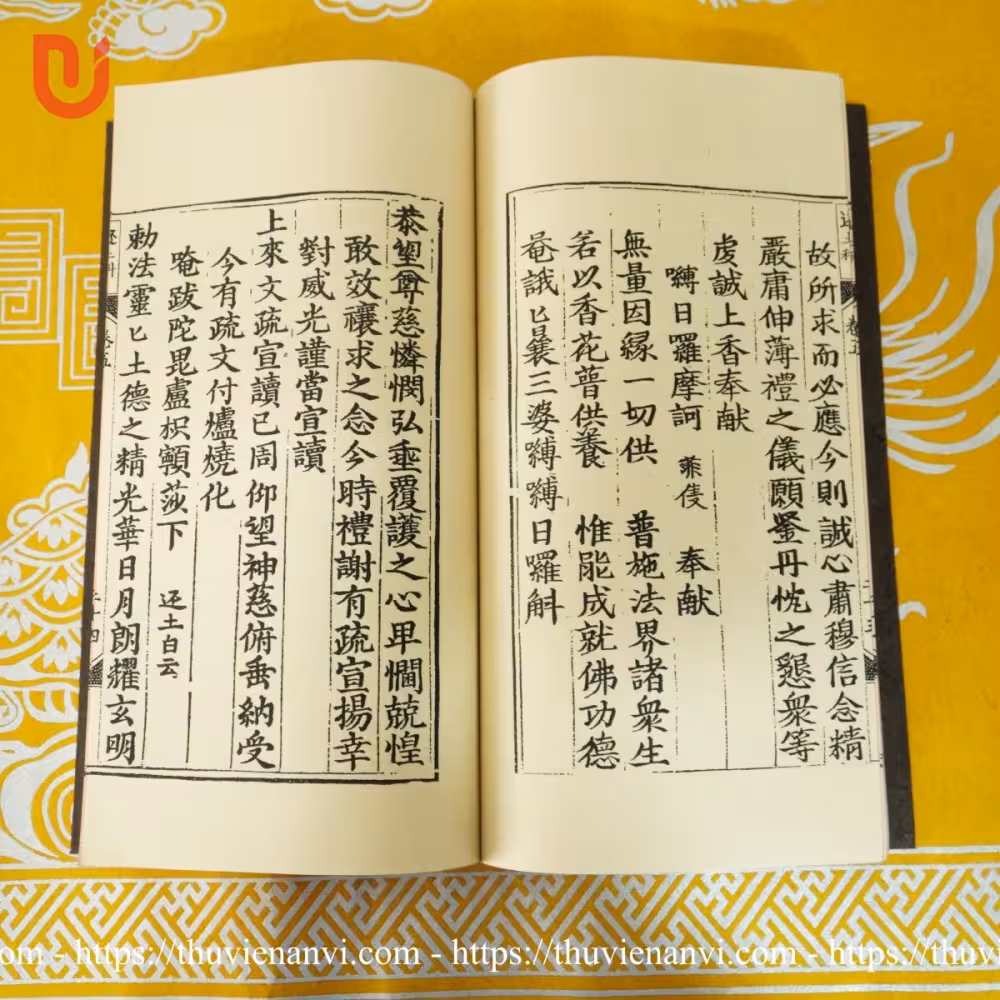 故所求而必應今則誠心肅穆信念精
嚴庸伸薄禮之儀願鑒丹忱之懇衆等
虔誠上香奉献
嚩日羅摩訶 奉献
無量因緣一切供 普施法界諸衆生
若以香花普供養 惟能成就佛功德
唵誐匕曩三婆嚩嚩日羅斛
恭望尊慈憐憫弘垂覆護之心卑悃兢惶
敢效禳求之念今時禮謝有疏宣揚幸
對威光謹當宣讀
上來文疏宣讀已周仰望神慈俯垂納受
今有疏文付爐燒化
唵跋陀毘盧枳顊莎下 还土白云
勅法靈匕土德之精光華日月朗耀玄明
卷五
.com - https://thuvienanvi.com - https://thuvienanvi.com - https://thuvienanvi.co